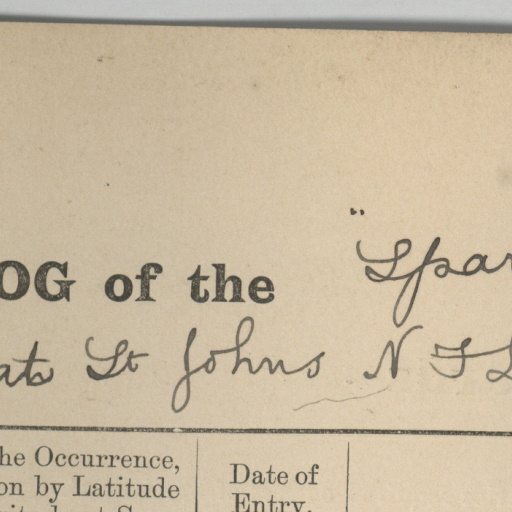 OG of the "Spar
at St Johns N F L
he Occurrence,
on by Latitude
Date of
Entry,